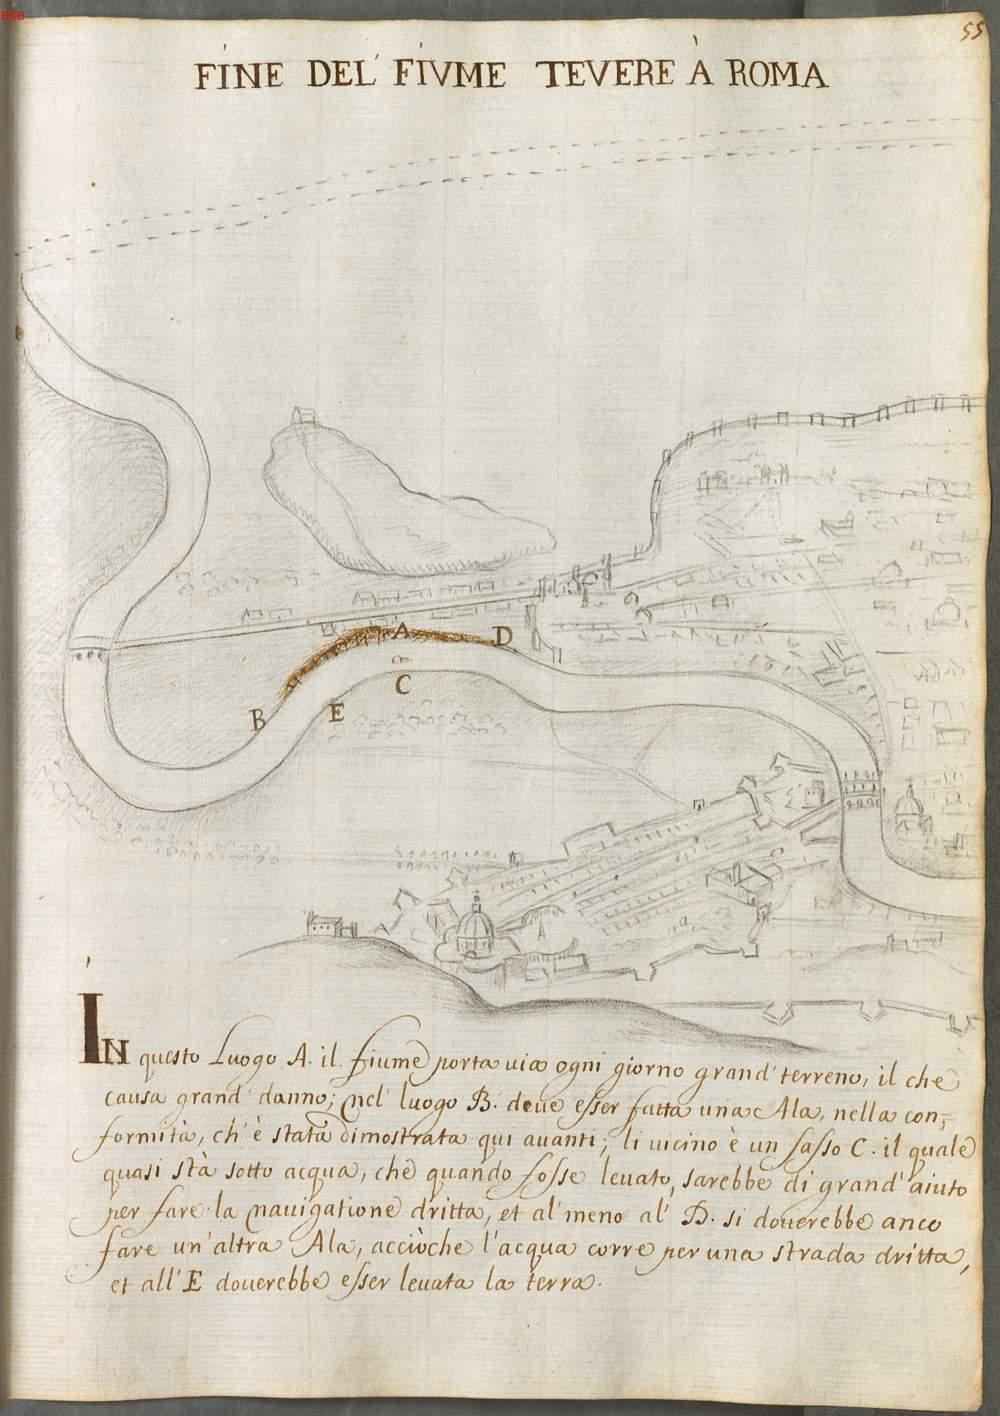 BSB
55
FINE DEL' FIVME TEVERE À ROMA
A
D
C
B
E
IN questo Luogo A. il fiume porta uia ogni giorno grand' terreno, il che
causa grand' danno; nel' luogo B. deue esser fatta una Ala, nella con=
formità, ch' è stata dimostrata qui auanti; li uicino è un sasso C. il quale
quasi stà sotto acqua, che quando fosse leuato, sarebbe di grand' aiuto
per fare la nauigatione dritta, et al' meno al' D. si douerebbe anco
fare un' altra Ala, acciòche l'acqua corre per una strada dritta,
et all' E douerebbe esser leuata la terra.